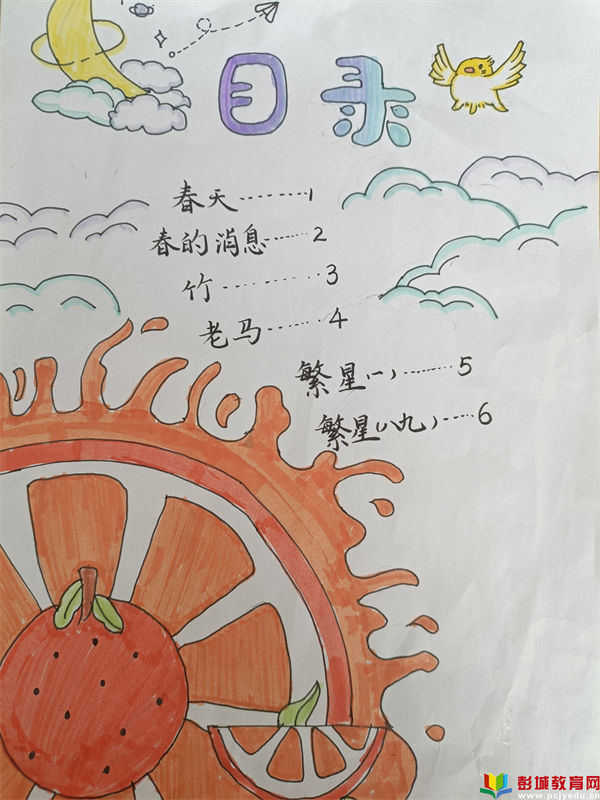 目录
春天……1
春的消息……2
竹……3
老马……4
繁星(一)……5
繁星(八九)……6
彭城教育网
www.pcjyedu.cn